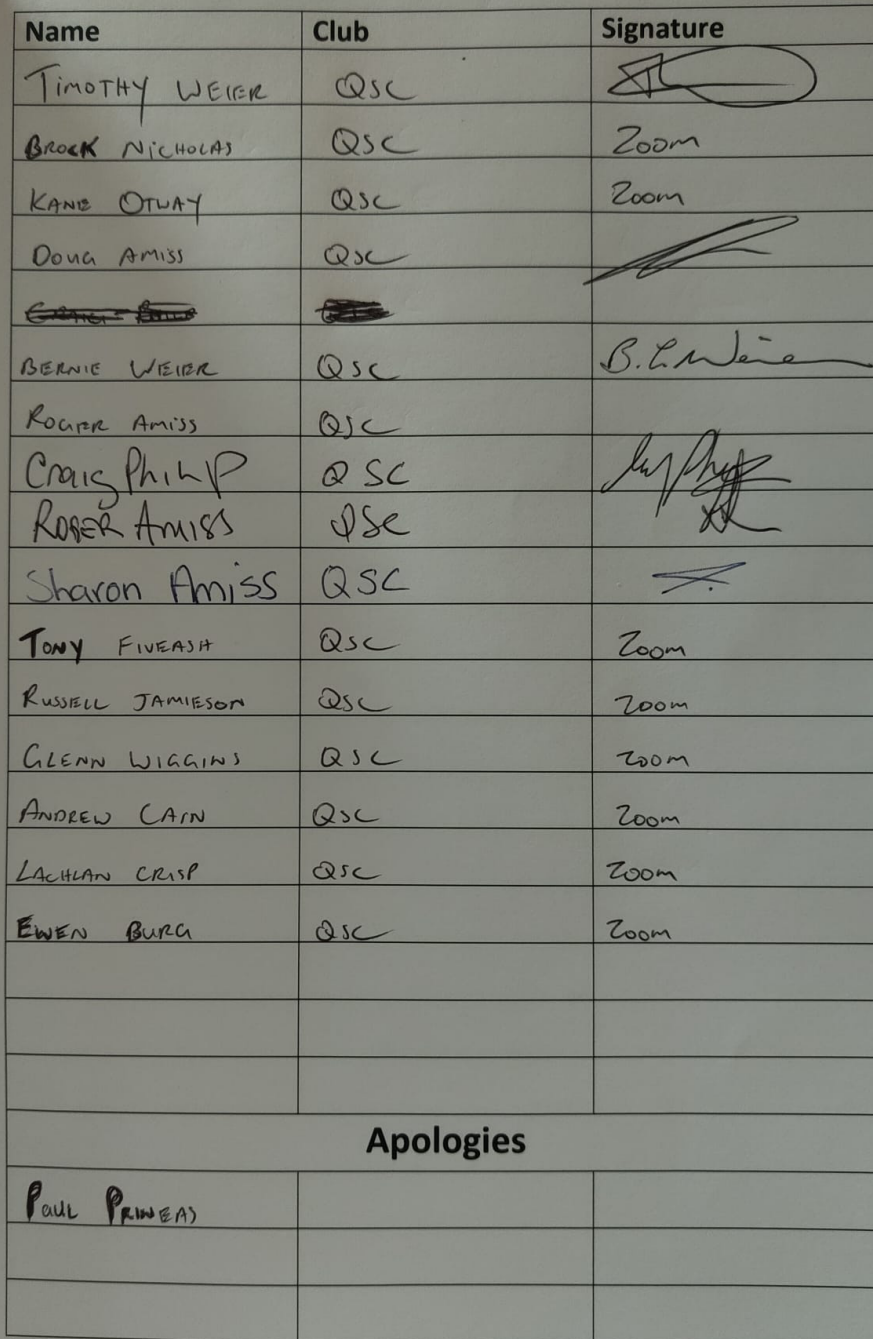 Name Club Signature
TIMOTHY WEIER QSC
BROCK NICHOLAS QSC Zoom
KANE OTWAY QSC Zoom
DOUG AMISS QSC
BERNIE WEIER QSC B. L. Weier
ROGER AMISS QSC
Craig Philp QSC
ROGER AMISS QSC
Sharon Amiss QSC
TONY FIVEASH QSC Zoom
RUSSELL JAMIESON QSC Zoom
GLENN WIGGINS QSC Zoom
ANDREW CAIN QSC Zoom
LACHLAN CRISP QSC Zoom
EWEN BURG QSC Zoom
Apologies
PAUL PRINEAS